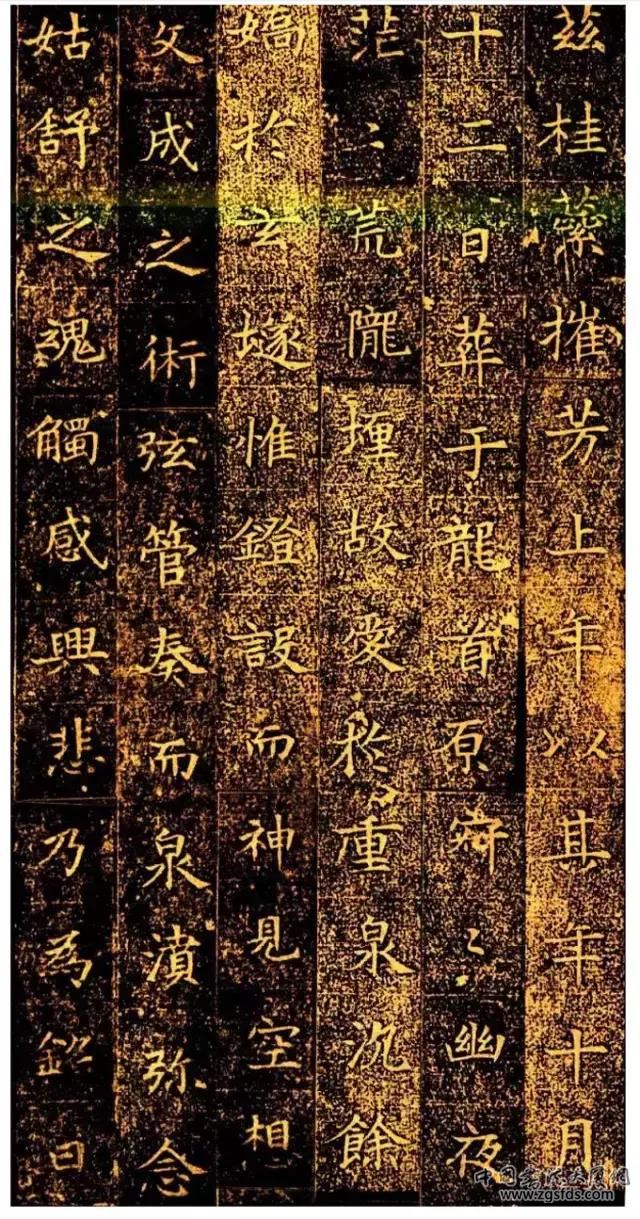 茲桂蘂摧芳上年以其年十月
十二日葬于龍首原寂〻幽夜
茫〻荒隴埋故愛於重泉沉餘
嬌於玄隧惟鐙設而神見空相
文成之術弦管奏而泉濆弥念
姑舒之魂觸感興悲乃為銘曰
www.zgsfds.com